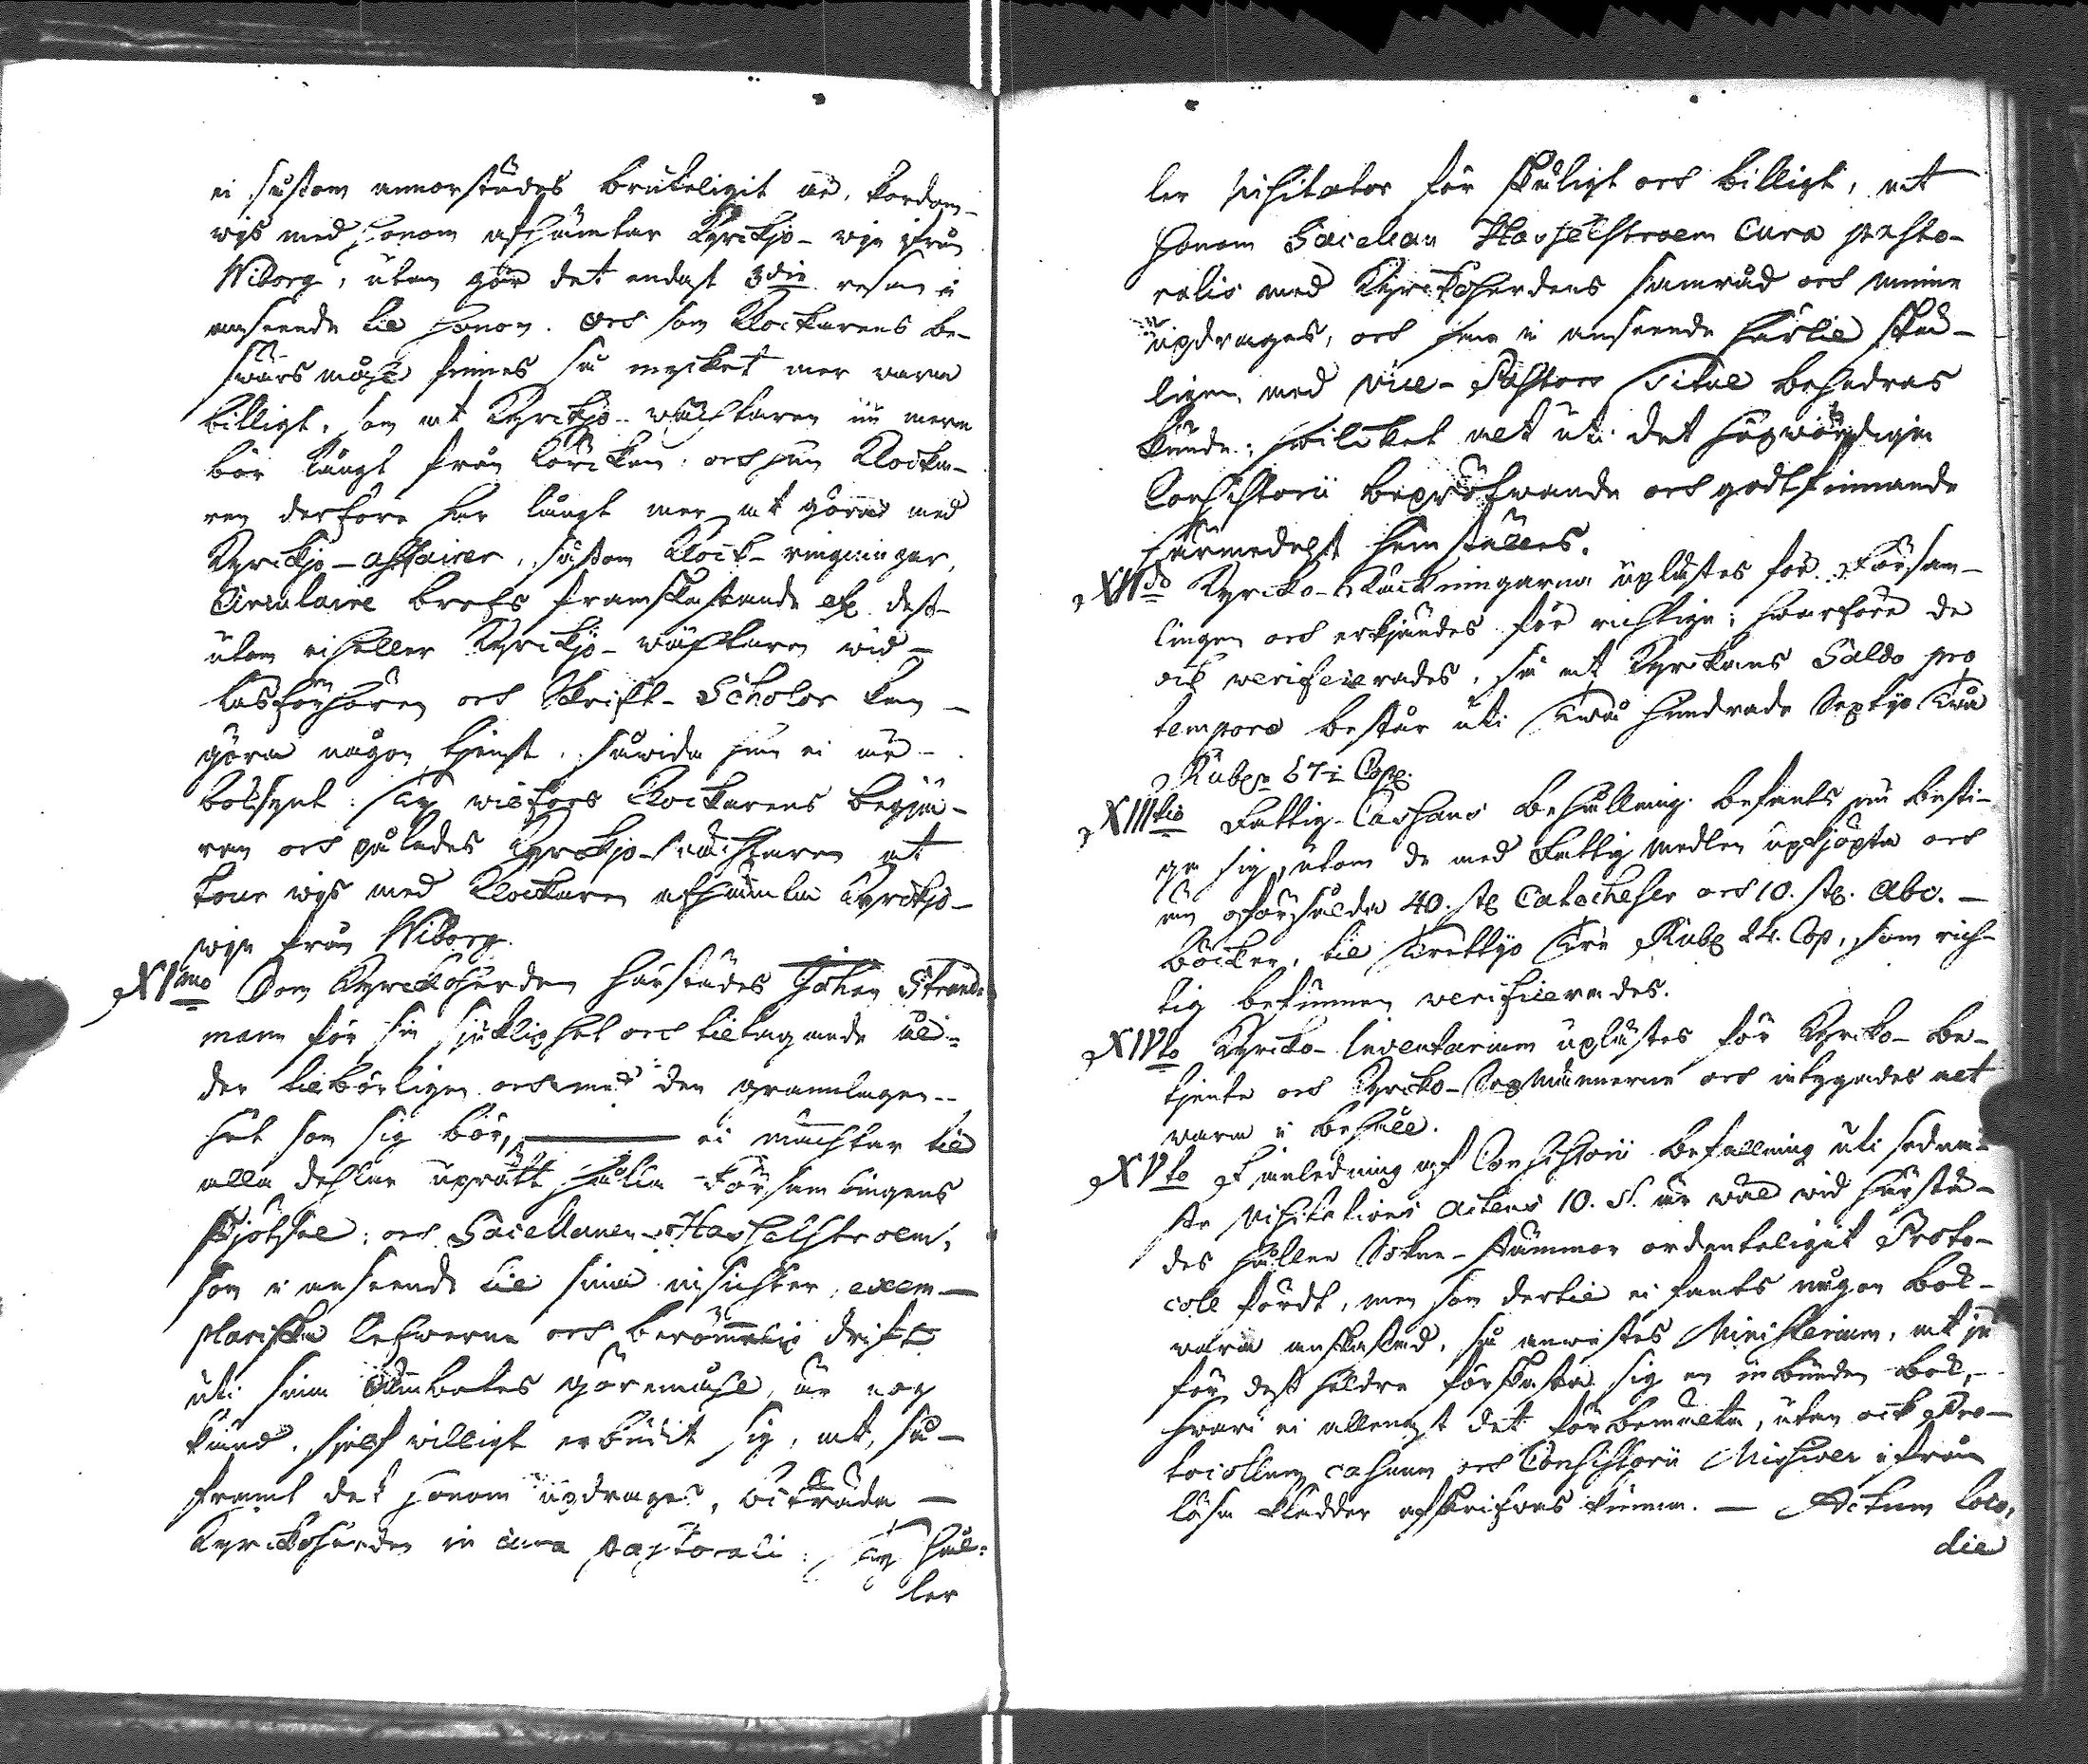 ei såsom annorstädes brukeligit är, tordom-
wis med honom afhämtar Kyrckjo-win ifrån
Wiborg, utan gör det endast 3die resan i
anseende til honom. Och som Klockarens be-
swärs måhl finnes så mycket mer vara
billigt, som at Kyrckjo-wächtaren än mera
bör långt från Körckan: och han Klocka-
ren derföre har långt mer at göra med
Kyrckjo-affairer, såsom Klock-ringningar,
Circulaire brefs framskaffande etc. dess-
utom ei heller Kyrckjo-wächtaren wid
Läsförhören och Skrift-Scholor kan
göra någon tjenst, såwida han ei är
bokfynt: Ty wilfors Klockarens begjä-
ran och pålades Kyrckjo-wächtaren at
tour wis med Klockaren afhämta Kyrckjo-
win från Wiborg.
XImo Som Kyrckoherden härstädes Johan Strand-
mann för sin sjuklighet och tiltagande ål-
der tilbörligen och med den grannlagen-
het som sig bör, ei mächtar til
alla dehlar uprätt hålla Församlingens
skjötsel: och Sacellanen Hasselstroem,
som i anseende til sina insichter, exem-
plariska lefwerne och berömmelig drift
uti sina Ämbetes göremåhl, är nog
känd, sjelf willigt erbudit sig, at, så-
framt det honom updrages, biträda
Kyrckoherden in cura pastorali: Ty hål-
ler
ler Visitator för skäligt och billigt, at
honom Sacellan Hasselstroem Cura pasto-
ralis med Kyrckoherdens samråd och minne
updrages, och han i anseende härtil skä-
ligen med Vice-Pastors Titul behedras
kunde; hwilcket alt uti det högwördiga
Consistorii bepröfwande och godtfinnande
härmedelst hemställes.
XIIdo Kyrcko-Räckningarna uplästes för Försam-
lingen och erkjändes för richtiga; hwarföre de
ock verificerades, så at Kyrckans Saldo pro
tempore består uti Twå hundrade Sextijo Twå
Rubel 67½ Cop.
XIIItio Fattig-Cassans Behållning befants nu besti-
ga sig, utom de med Fattig medlen upkjöpta och
än oförsålda 40. st. Catecheser och 10. st. Abc.-
böcker, til Trettijo Tre Rubl 24. Cop, som rich-
tig befunnen verificerades.
XIVto Kyrcko-Inventarium uplästes för Kyrcko-be-
tjente och Kyrcko-Sexmännerne och intygades alt
wara i behåll.
XVto I anledning af Consistorii befallning uti sedna-
ste Visitations Actens 10. §. är wäl wid härstä-
des hållne Sokne-stämmor ordenteligit Proto-
coll fördt, men som dertil ei fants någon bok
wara anskaffad, så anwistes Ministerium, at ju
för dess heldre förskaffa sig en inbunden bok,
hwari ei allenast det förbemälta, utan ock Pro-
tocollum casuum och Consistorii Missiver ifrån
lösa kladdar afskrifwas kunna. — Actum loco,
die